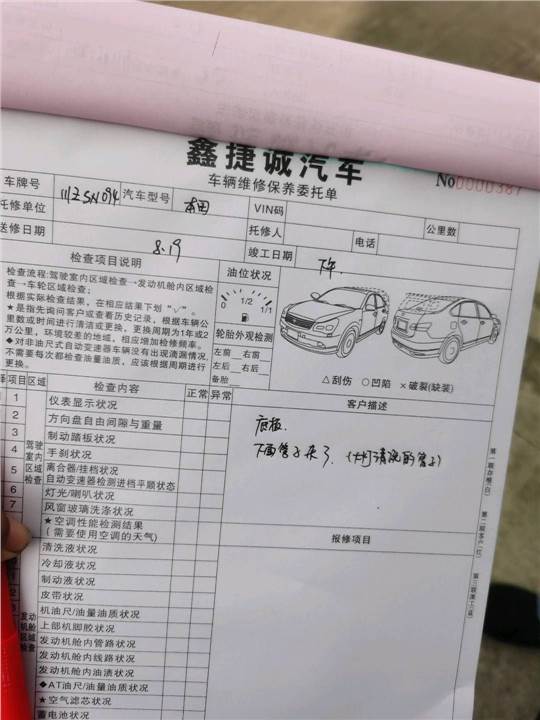 鑫捷诚汽车
车辆维修保养委托单
No0000387
车牌号 川Z5N094 汽车型号 本田 VIN码 公里数
托修单位 托修人 电话
送修日期 8.19 竣工日期
检查项目说明 油位状况
检查流程:驾驶室内区域检查→发动机舱内区域检
查→车轮区域检查;
根据实际检查结果,在相应结果下划“√”。
★是指先询问客户或查看历史记录,根据车辆公
里数或时间进行清洁或更换,更换周期为1年或2
万公里,环境较差的地域,相应增加检修频率。
◆对非油尺式自动变速器车辆没有出现滴漏情况,
不需要每次都检查油量油质,应该根据周期进行
更换。
0 1/2 1/1
轮胎外观检测
左前 右前
左后 右后
备胎
△刮伤 ○凹陷 ×破裂(缺装)
择 项目 区域 检查内容 正常 异常 客户描述
1 仪表显示状况
2 方向盘自由间隙与重量
3 制动踏板状况
4 手刹状况
5 离合器/挂档状况
自动变速器检测进档平顺状态
6 灯光/喇叭状况
7 风窗玻璃洗涤状况
★空调性能检测结果
(需要使用空调的天气)
驾驶
室内
区域
检查
清洗液状况
冷却液状况
制动液状况
皮带状况
机油尺/油量油质状况
上部机脚胶状况
发动机舱内管路状况
发动机舱内线路状况
发动机舱内油渍状况
◆AT油尺/油量油质状况
★空气滤芯状况
蓄电池状况
发动
机舱
区域
检查
底板
下面管子来了
清洗
管子
报修项目
第一联存根(白)
第二联客户(红)